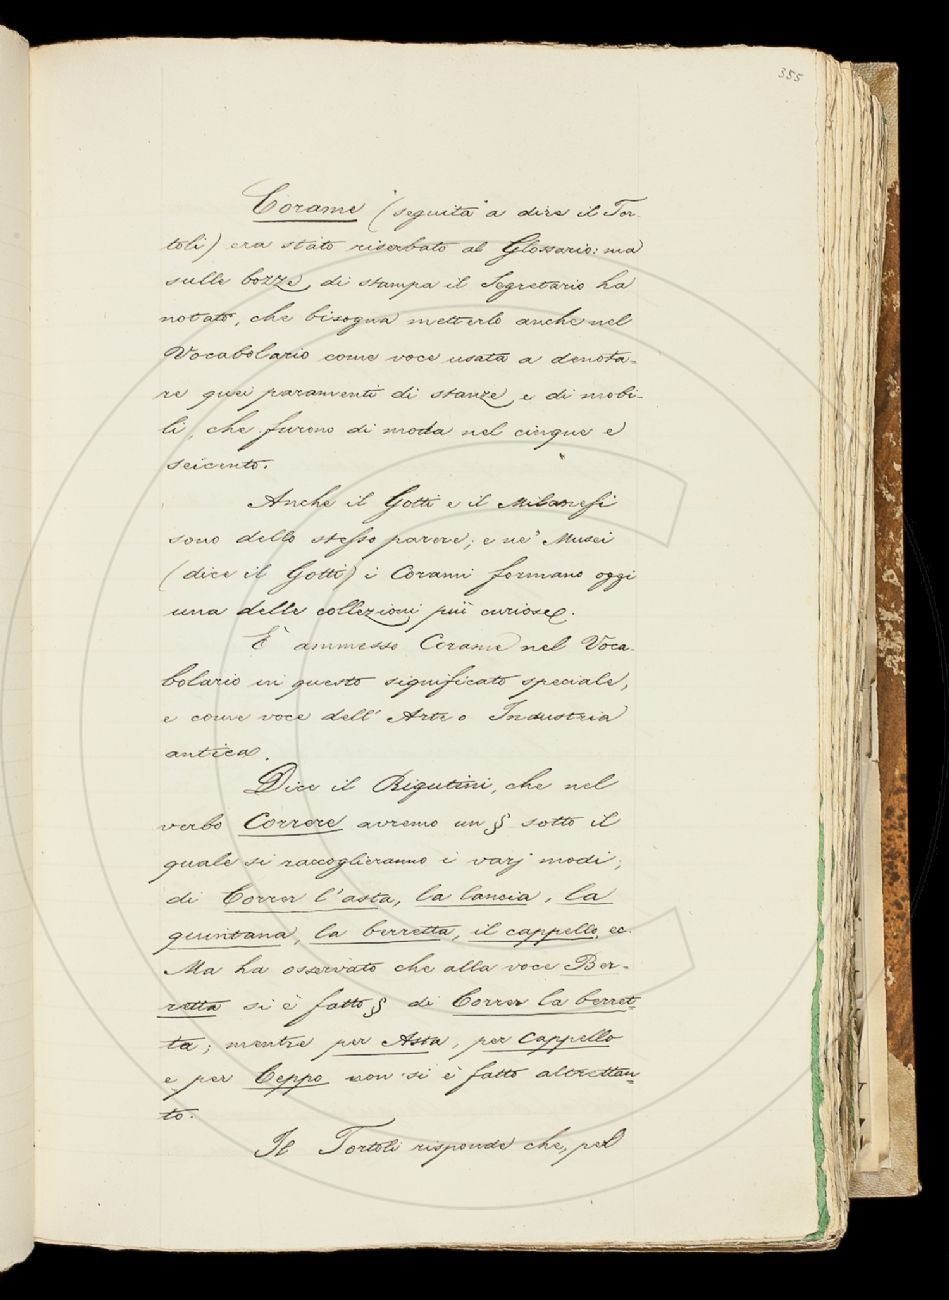 355
Corame (seguita a dire il Tor-
toli) era stato riserbato al Glossario: ma
sulle bozze di stampa il Segretario ha
notato, che bisogna metterlo anche nel
Vocabolario come voce usata a denota-
re quei paramenti di stanze e di mobi-
li, che furono di moda nel cinque e
seicento.
Anche il Gotti e il Milanesi
sono dello stesso parere; e ne' Musei
(dice il Gotti) i Corami formano oggi
una delle collezioni più curiose.
È ammesso Corame nel Voca-
bolario in questo significato speciale,
e come voce dell' Arte o Industria
antica.
Dice il Rigutini, che nel
verbo Correre avremo un § sotto il
quale si raccoglieranno i varj modi;
di Correr l'asta, la lancia, la
quintana, la berretta, il cappello ec.
Ma ha osservato che alla voce Ber-
retta si è fatto § di Correr la berret-
ta; mentre per Asta, per Cappello
e per Ceppo non si è fatto altrettan-
to.
Il Tortoli risponde che, pel